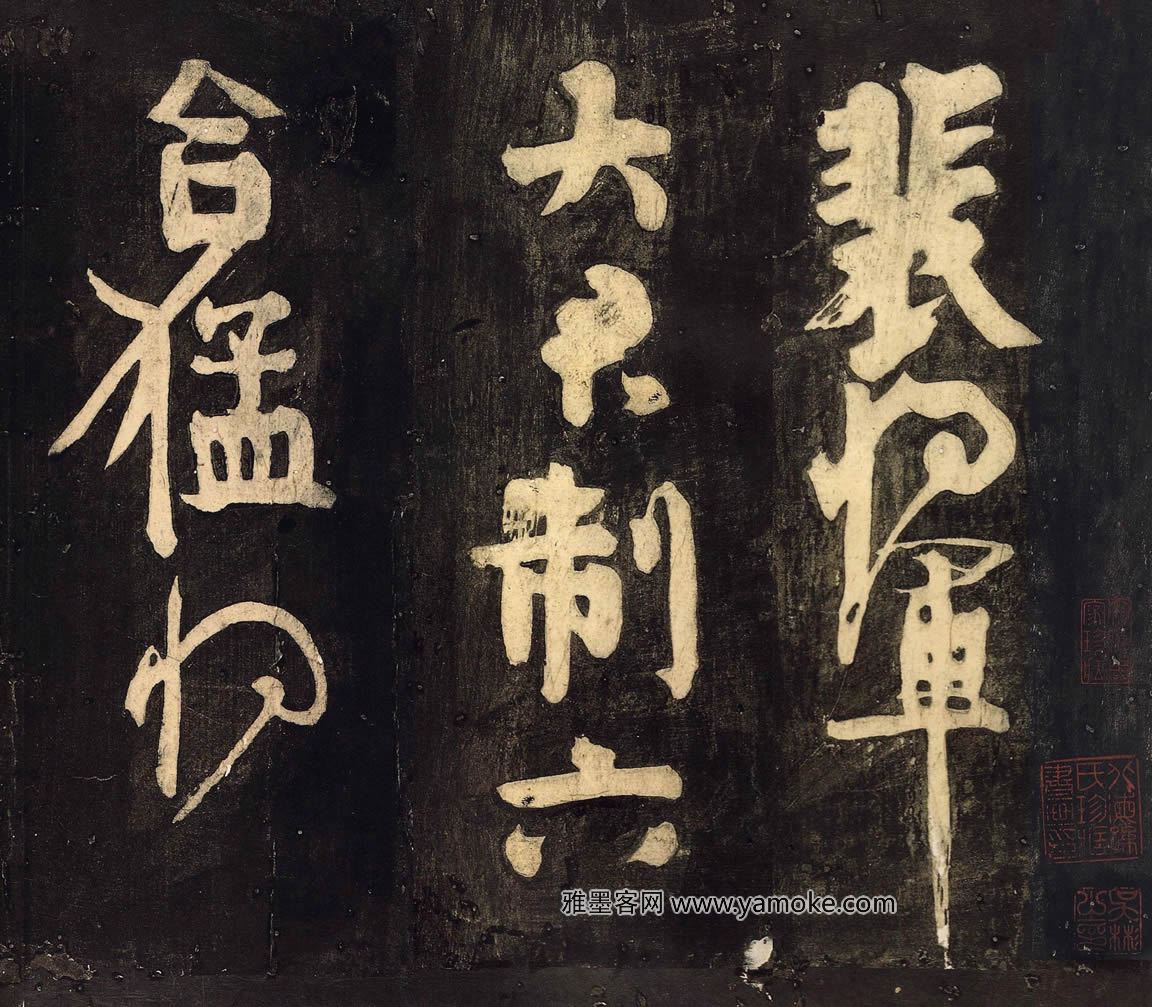 裴將軍
大君制六
合猛將
雅墨客网 www.yamoke.com